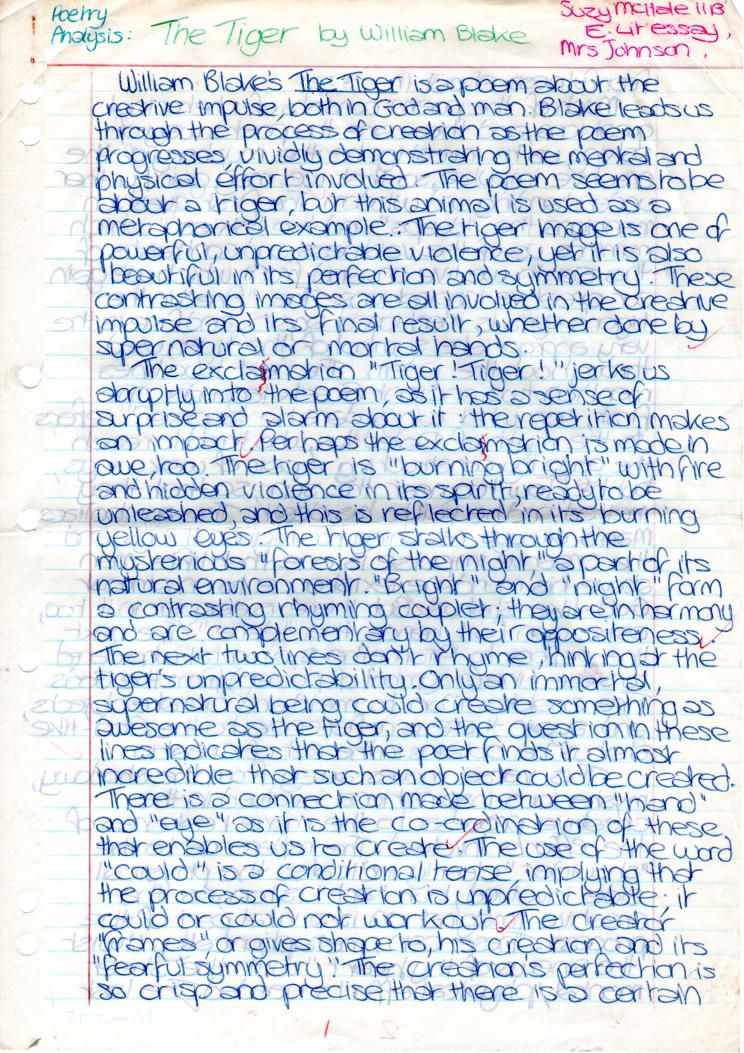 Poetry
Analysis: The Tiger by William Blake
Suzy McHale 11B
E. Lit essay,
Mrs Johnson.
William Blake's The Tiger is a poem about the
creative impulse, both in God and man. Blake leads us
through the process of creation as the poem
progresses, vividly demonstrating the mental and
physical effort involved. The poem seems to be
about a tiger, but this animal is used as a
metaphorical example. The tiger image is one of
powerful, unpredictable violence, yet it is also
beautiful in its perfection and symmetry. These
contrasting images are all involved in the creative
impulse and its final result, whether done by
supernatural or mortal hands.
The exclaimation "Tiger! Tiger!" jerks us
abruptly into the poem, as it has a sense of
surprise and alarm about it: the repetition makes
an impact. Perhaps the exclaimation is made in
awe, too. The tiger is "burning bright" with fire
and hidden violence in its spirit, ready to be
unleashed, and this is reflected in its burning
yellow eyes. The tiger stalks through the
mysterious "forests of the night" a part of its
natural environment. "Bright" and "night" form
a contrasting rhyming couplet; they are in harmony
and are complementary by their oppositeness.
The next two lines don't rhyme, hinting at the
tiger's unpredictability. Only an immortal,
supernatural being could create something as
awesome as the tiger, and the question in these
lines indicates that the poet finds it almost
incredible that such an object could be created.
There is a connection made between "hand"
and "eye" as it is the co-ordination of these
that enables us to create. The use of the word
"could" is a conditional tense implying that
the process of creation is unpredictable; it
could or could not work out. The creator
"frames" or gives shape to, his creation, and its
"fearful symmetry". The creation's perfection is
so crisp and precise that there is a certain
7mm — A4
1
2